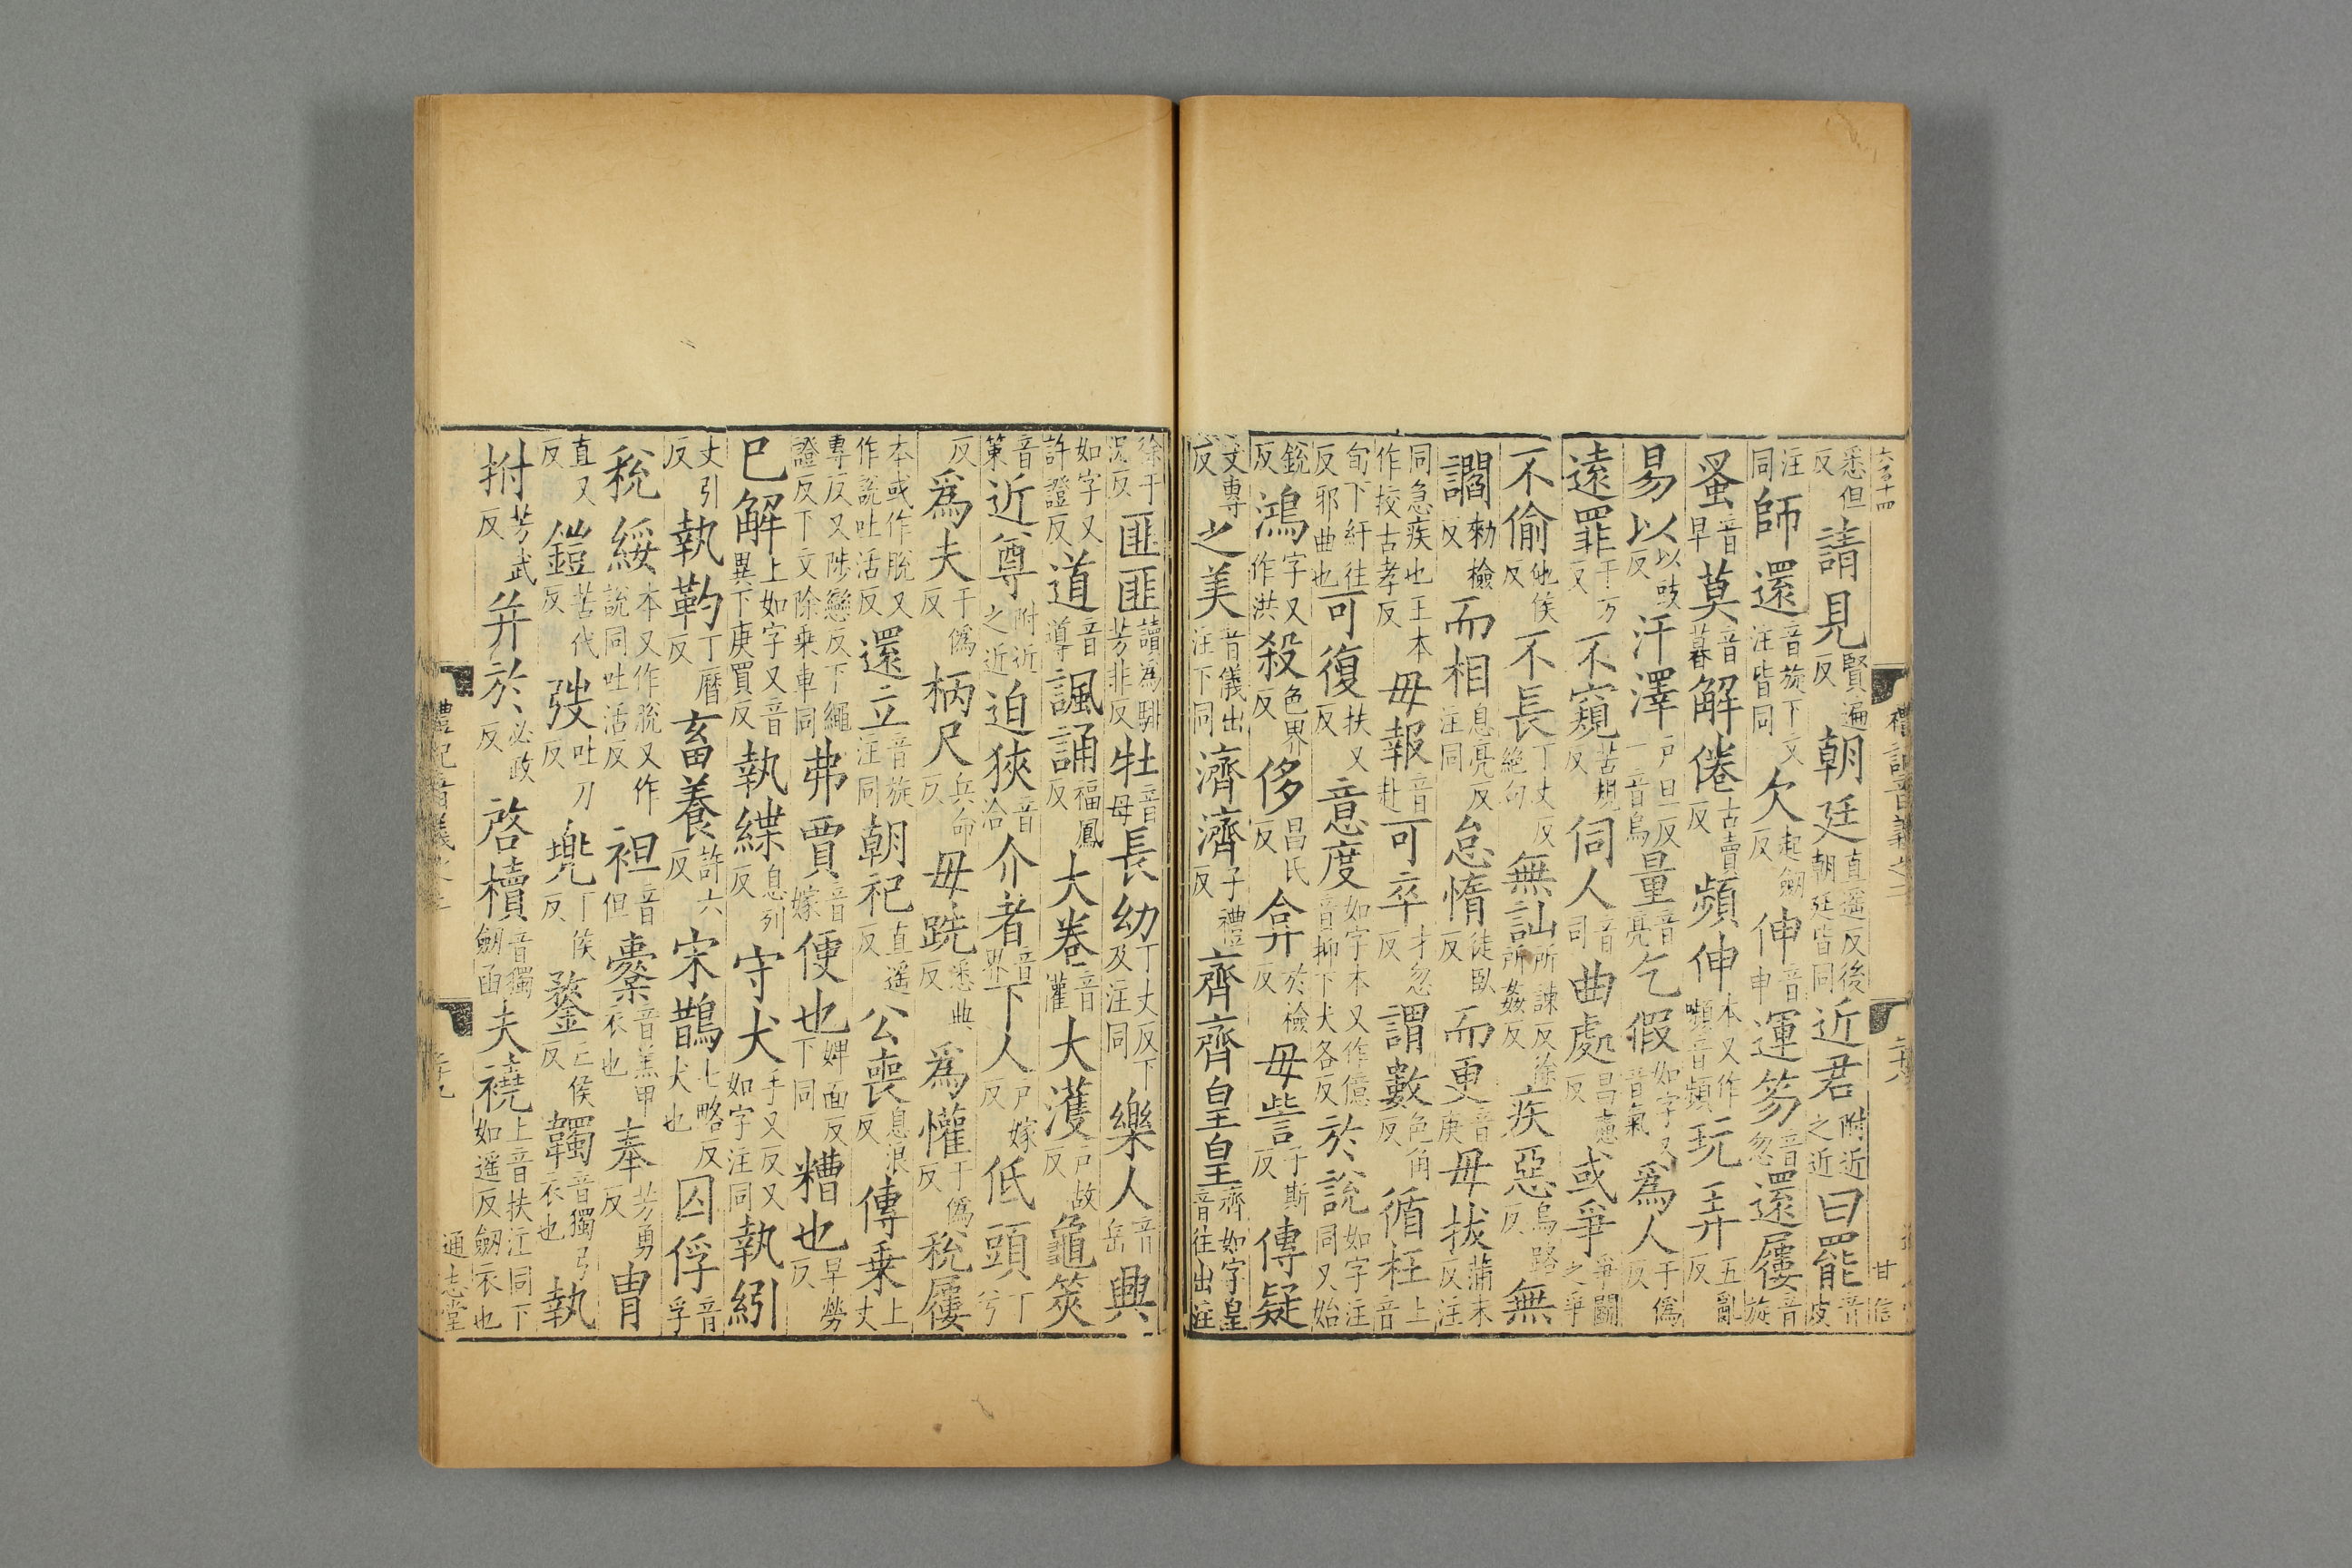 悉但反請見賢遍反朝廷直遥反後朝廷皆同近君附近之近曰罷音皮
注同師還音旋下文注皆同欠起劒反伸音申運笏音忽還屨音旋
蚤音早莫音暮解倦古賣反頻伸本又作嚬音頻玩弄五亂反
易以以豉反汗澤戸旦反一音烏量音亮乞假如字又音氣爲人于僞反
遠罪于万反不窺苦規反伺人音司曲處昌慮反或爭爭鬭之爭
不偷他侯反不長丁丈反絶句無訕所諫反徐所姦反疾惡烏路反無
讇勑檢反而相息亮反注同怠惰徒臥反而更音庚毋拔蒲末反注
同急疾也王本作校古孝反毋報音赴可卒才忽反謂數色角反循枉上音
旬下紆往反邪曲也可復扶又反意度如字本又作億音抑下大各反於說如字注同又始
銳反鴻字又作洪殺色界反侈昌氏反弇於檢反毋訾子斯反傳疑
丈專反之美音儀出注下同濟濟子禮反齊齊皇皇齊如字皇音往出注
徐于況反匪匪讀爲騑芳非反牡音母長幼丁丈反下及注同樂人音岳興
如字又許證反道音導諷誦福鳳反大卷音灌大濩戸故反龜筴
音策近尊附近之近迫狹音洽介者音界下人戸嫁反低頭丁兮
反爲夫于僞反柄尺兵命反毋跣悉典反爲懽于僞反稅屨
本或作脫又作說吐活反還立音旋注同朝祀直遥反公喪息浪反傳乗上丈
專反又陟戀反下繩證反下文除乗車同弗賈音嫁便也婢面反下同糟也早勞反
已解上如字又音異下庚買反執緤息列反守犬手又反又如字注同執紖
丈引反執靮丁曆反畜養許六反宋鵲七略反犬也囚俘音孚
稅綏本又作脫又作說同吐活反袒音但櫜音羔甲衣也奉芳勇反冑
直又反鎧苦代反弢吐刀反兠丁侯反鍪亡侯反韣音獨弓衣也執
拊芳武反并於必政反啓櫝音獨劒函夫襓上音扶注同下如遥反劒衣也
通志堂